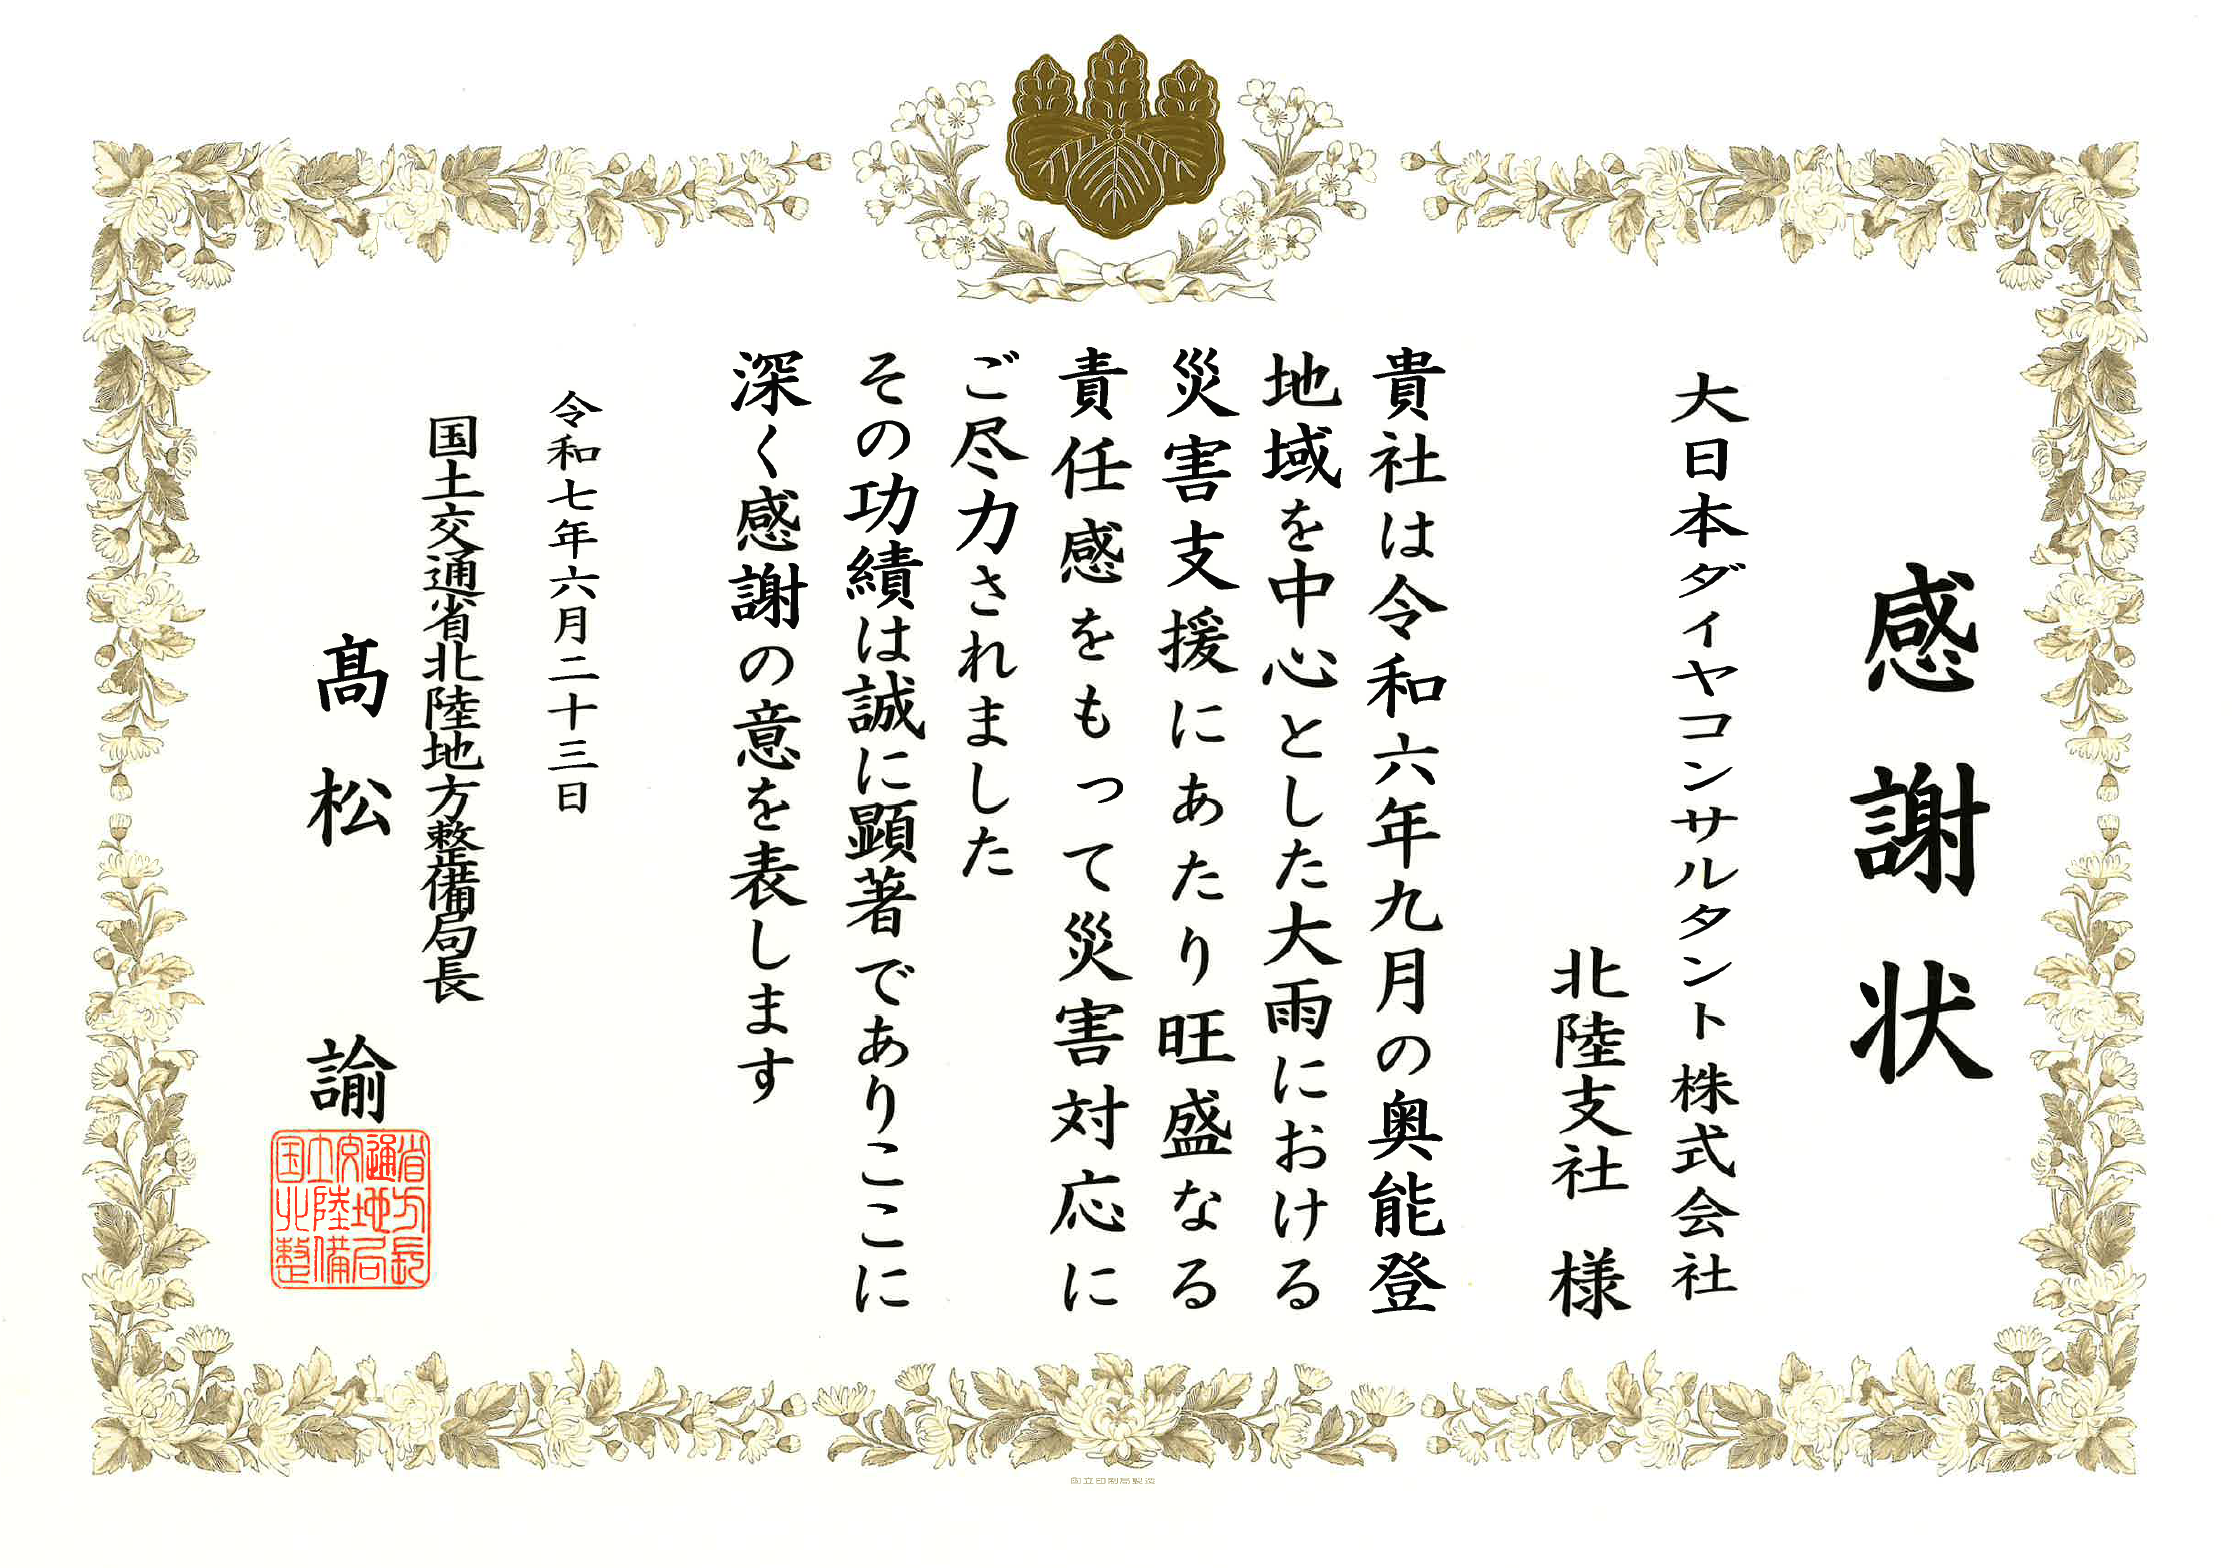 感謝状
大日本ダイヤコンサルタント株式会社
北陸支社 様
貴社は令和六年九月の奥能登
地域を中心とした大雨における
災害支援にあたり旺盛なる
責任感をもって災害対応に
ご尽力されました
その功績は誠に顕著でありここに
深く感謝の意を表します
令和七年六月二十三日
国土交通省北陸地方整備局長
髙松 諭
国土交通省
北陸地方
整備局長
国立印刷局製造